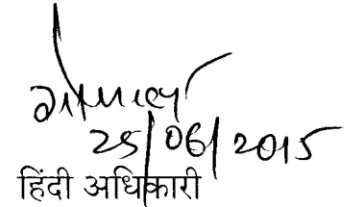 25/06/2015
हिंदी अधिकारी